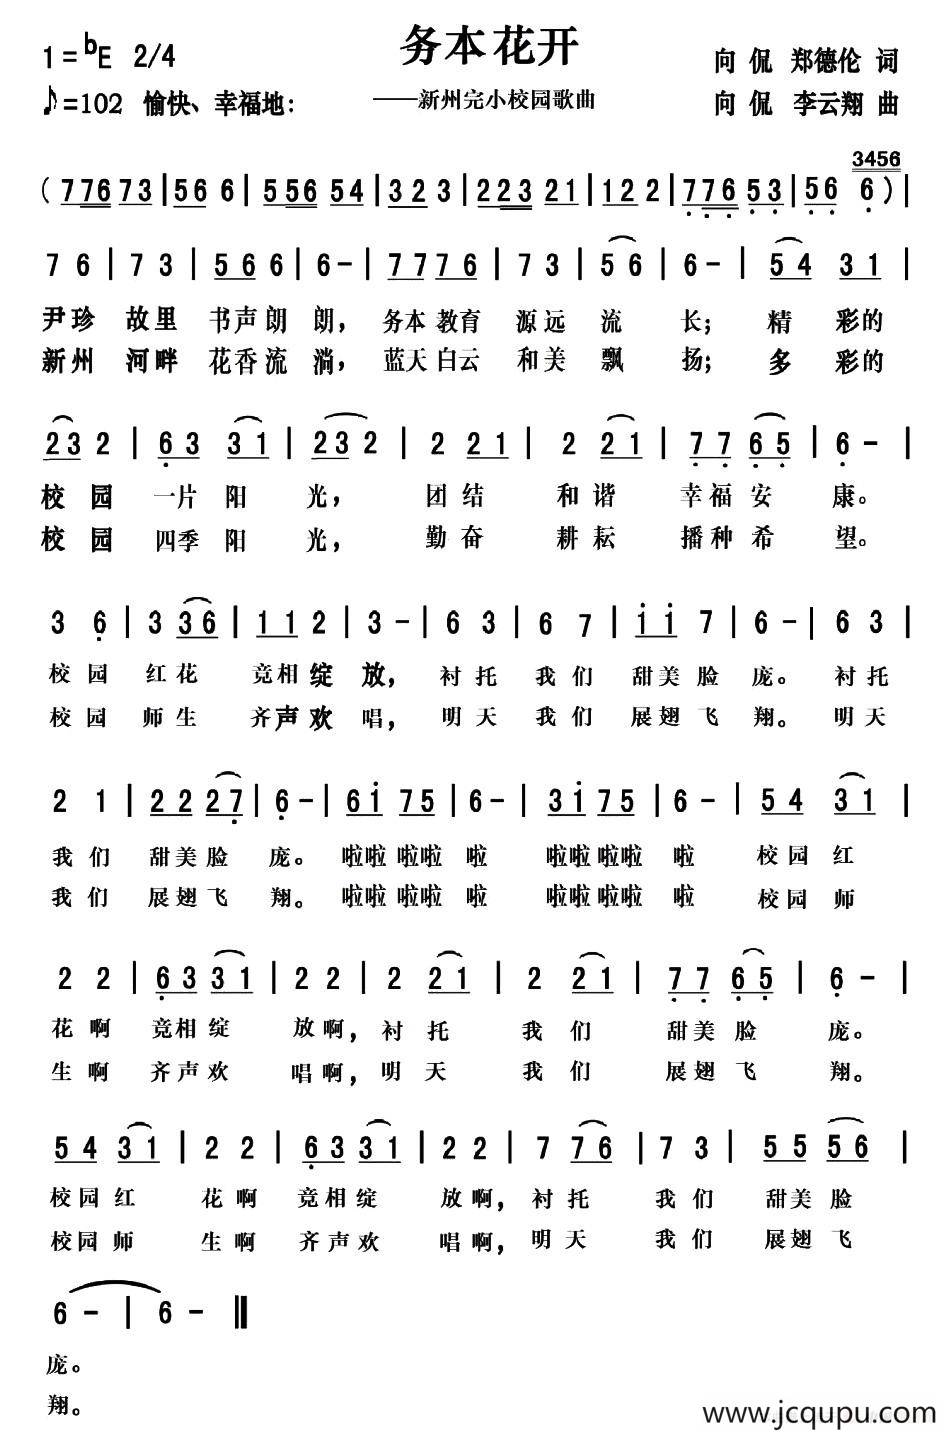 务本花开
1=bE 2/4
向侃 郑德伦 词
♪=102 愉快、幸福地：
——新州完小校园歌曲
向侃 李云翔 曲
3456
(77673|566|55654|323|22321|122|77653|566)|
76|73|566|6-|7776|73|56|6-|54 31|
尹珍 故里 书声朗 朗， 务本教育 源远 流 长；精 彩的
新州 河畔 花香流 淌， 蓝天白云 和美 飘 扬；多 彩的
232|63 31|232|2 21|2 21|77 65|6-|
校园 一片 阳 光， 团结 和谐 幸福安 康。
校园 四季 阳 光， 勤奋 耕耘 播种希 望。
36|3 36|112|3-|63|67|ii7|6-|63|
校园 红花 竞相绽 放， 衬托 我们 甜美脸 庞。 衬托
校园 师生 齐声欢 唱， 明天 我们 展翅飞 翔。 明天
21|2227|6-|6i75|6-|3i75|6-|54 31|
我们 甜美脸 庞。 啦啦 啦啦 啦 啦啦 啦啦 啦 校园红
我们 展翅飞 翔。 啦啦 啦啦 啦 啦啦 啦啦 啦 校园师
22|63 31|22|2 21|2 21|77 65|6-|
花啊 竞相绽 放啊，衬托 我们 甜美脸 庞。
生啊 齐声欢 唱啊，明天 我们 展翅飞 翔。
54 31|22|63 31|22|7 76|73|55 56|
校园红 花啊 竞相绽 放啊，衬托 我们 甜美脸
校园师 生啊 齐声欢 唱啊，明天 我们 展翅飞
6-|6-‖
庞。
翔。
www.jcqupu.com